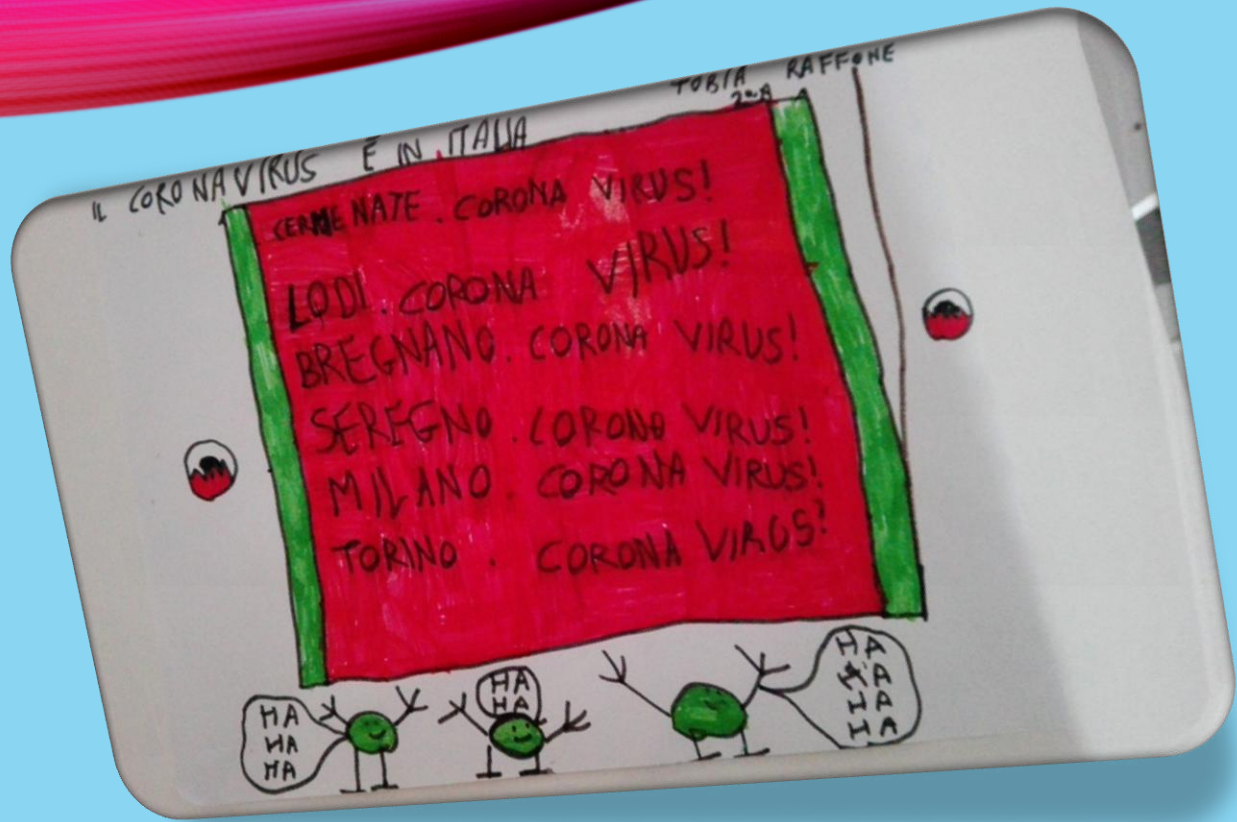 TOBIA RAFFONE
2^A A
IL CORONAVIRUS E IN ITALIA
CERMENATE. CORONA VIRUS!
LODI. CORONA VIRUS!
BREGNANO. CORONA VIRUS!
SEREGNO. CORONA VIRUS!
MILANO. CORONA VIRUS!
TORINO. CORONA VIRUS!
HA
HA
HA
HA
HA
HA
HA
HA
HA